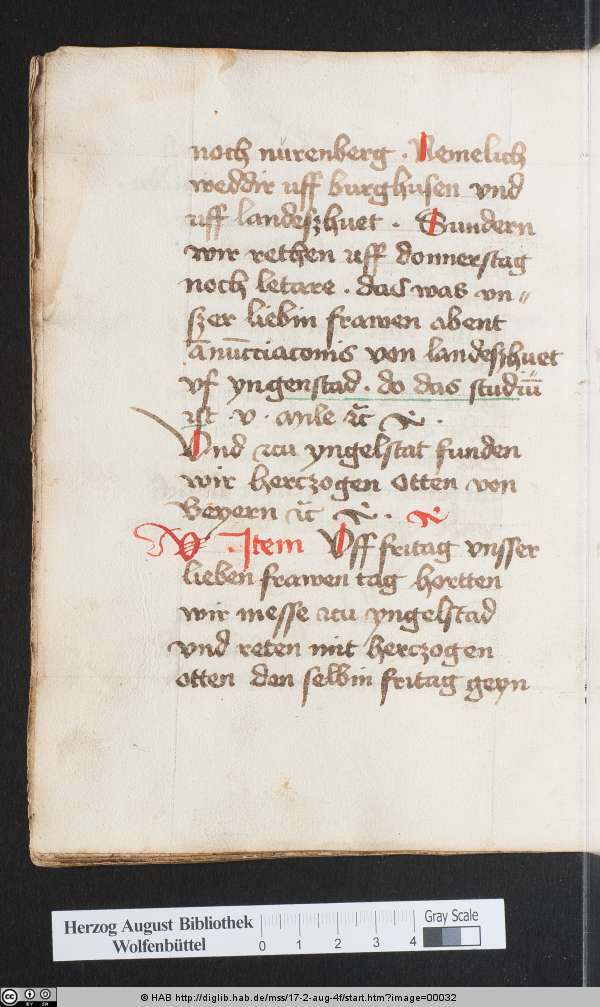 noch nürenberg . Nemelich
weddir uff burghusen vnd
uff landeszhuet . Sundern
wir rethen uff donnerstag
noch letare . das was vn〃
szer liebin frawen abent
anūcciaconis von landeszhuet
vf yngenstad . do das studiū
ist . v . mile ꝛc̄
Vnd zcu yngelstat funden
wir herczogen Otten von
Beyern ꝛc̄
Item Vff fritag vnsser
lieben frawen tag hortten
wir messe zcu yngelstad
vnd reten mit herczogen
otten den selbin fritag geyn
Herzog August Bibliothek
Wolfenbüttel
0 1 2 3 4
Gray Scale
© HAB http://diglib.hab.de/mss/17-2-aug-4f/start.htm?image=00032